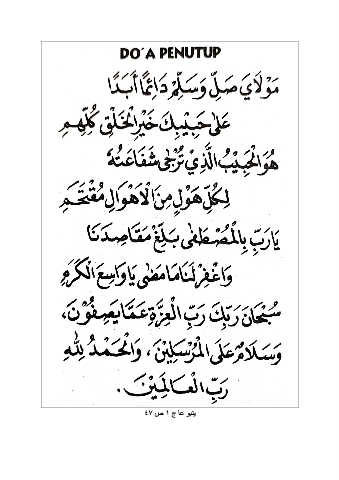 DO'A PENUTUP
مَوْلَايَ صَلِّ وَسَلِّمْ دَائِمًا أَبَدًا
عَلَى حَبِيْبِكَ خَيْرِ الْخَلْقِ كُلِّهِمِ
هُوَ الْحَبِيْبُ الَّذِيْ تُرْجَى شَفَاعَتُهُ
لِكُلِّ هَوْلٍ مِنَ الْأَهْوَالِ مُقْتَحَمِ
يَارَبِّ بِالْمُصْطَفَى بَلِّغْ مَقَاصِدَنَا
وَاغْفِرْ لَنَا مَا مَضَى يَا وَاسِعَ الْكَرَمِ
سُبْحَانَ رَبِّكَ رَبِّ الْعِزَّةِ عَمَّا يَصِفُوْنَ،
وَسَلَامٌ عَلَى الْمُرْسَلِيْنَ، وَالْحَمْدُ لِلّٰهِ
رَبِّ الْعَالَمِيْنَ.
ج ١ ص ٤٧